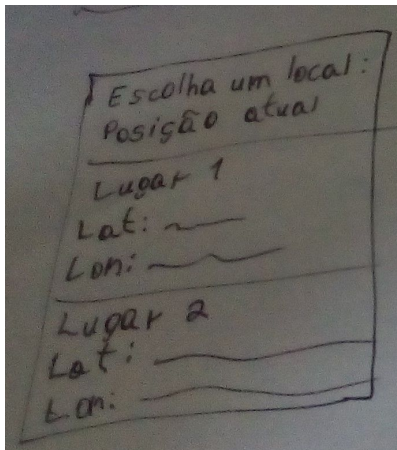 Escolha um local:
Posição atual
Lugar 1
Lat:
Lon:
Lugar 2
Lat:
Lon: